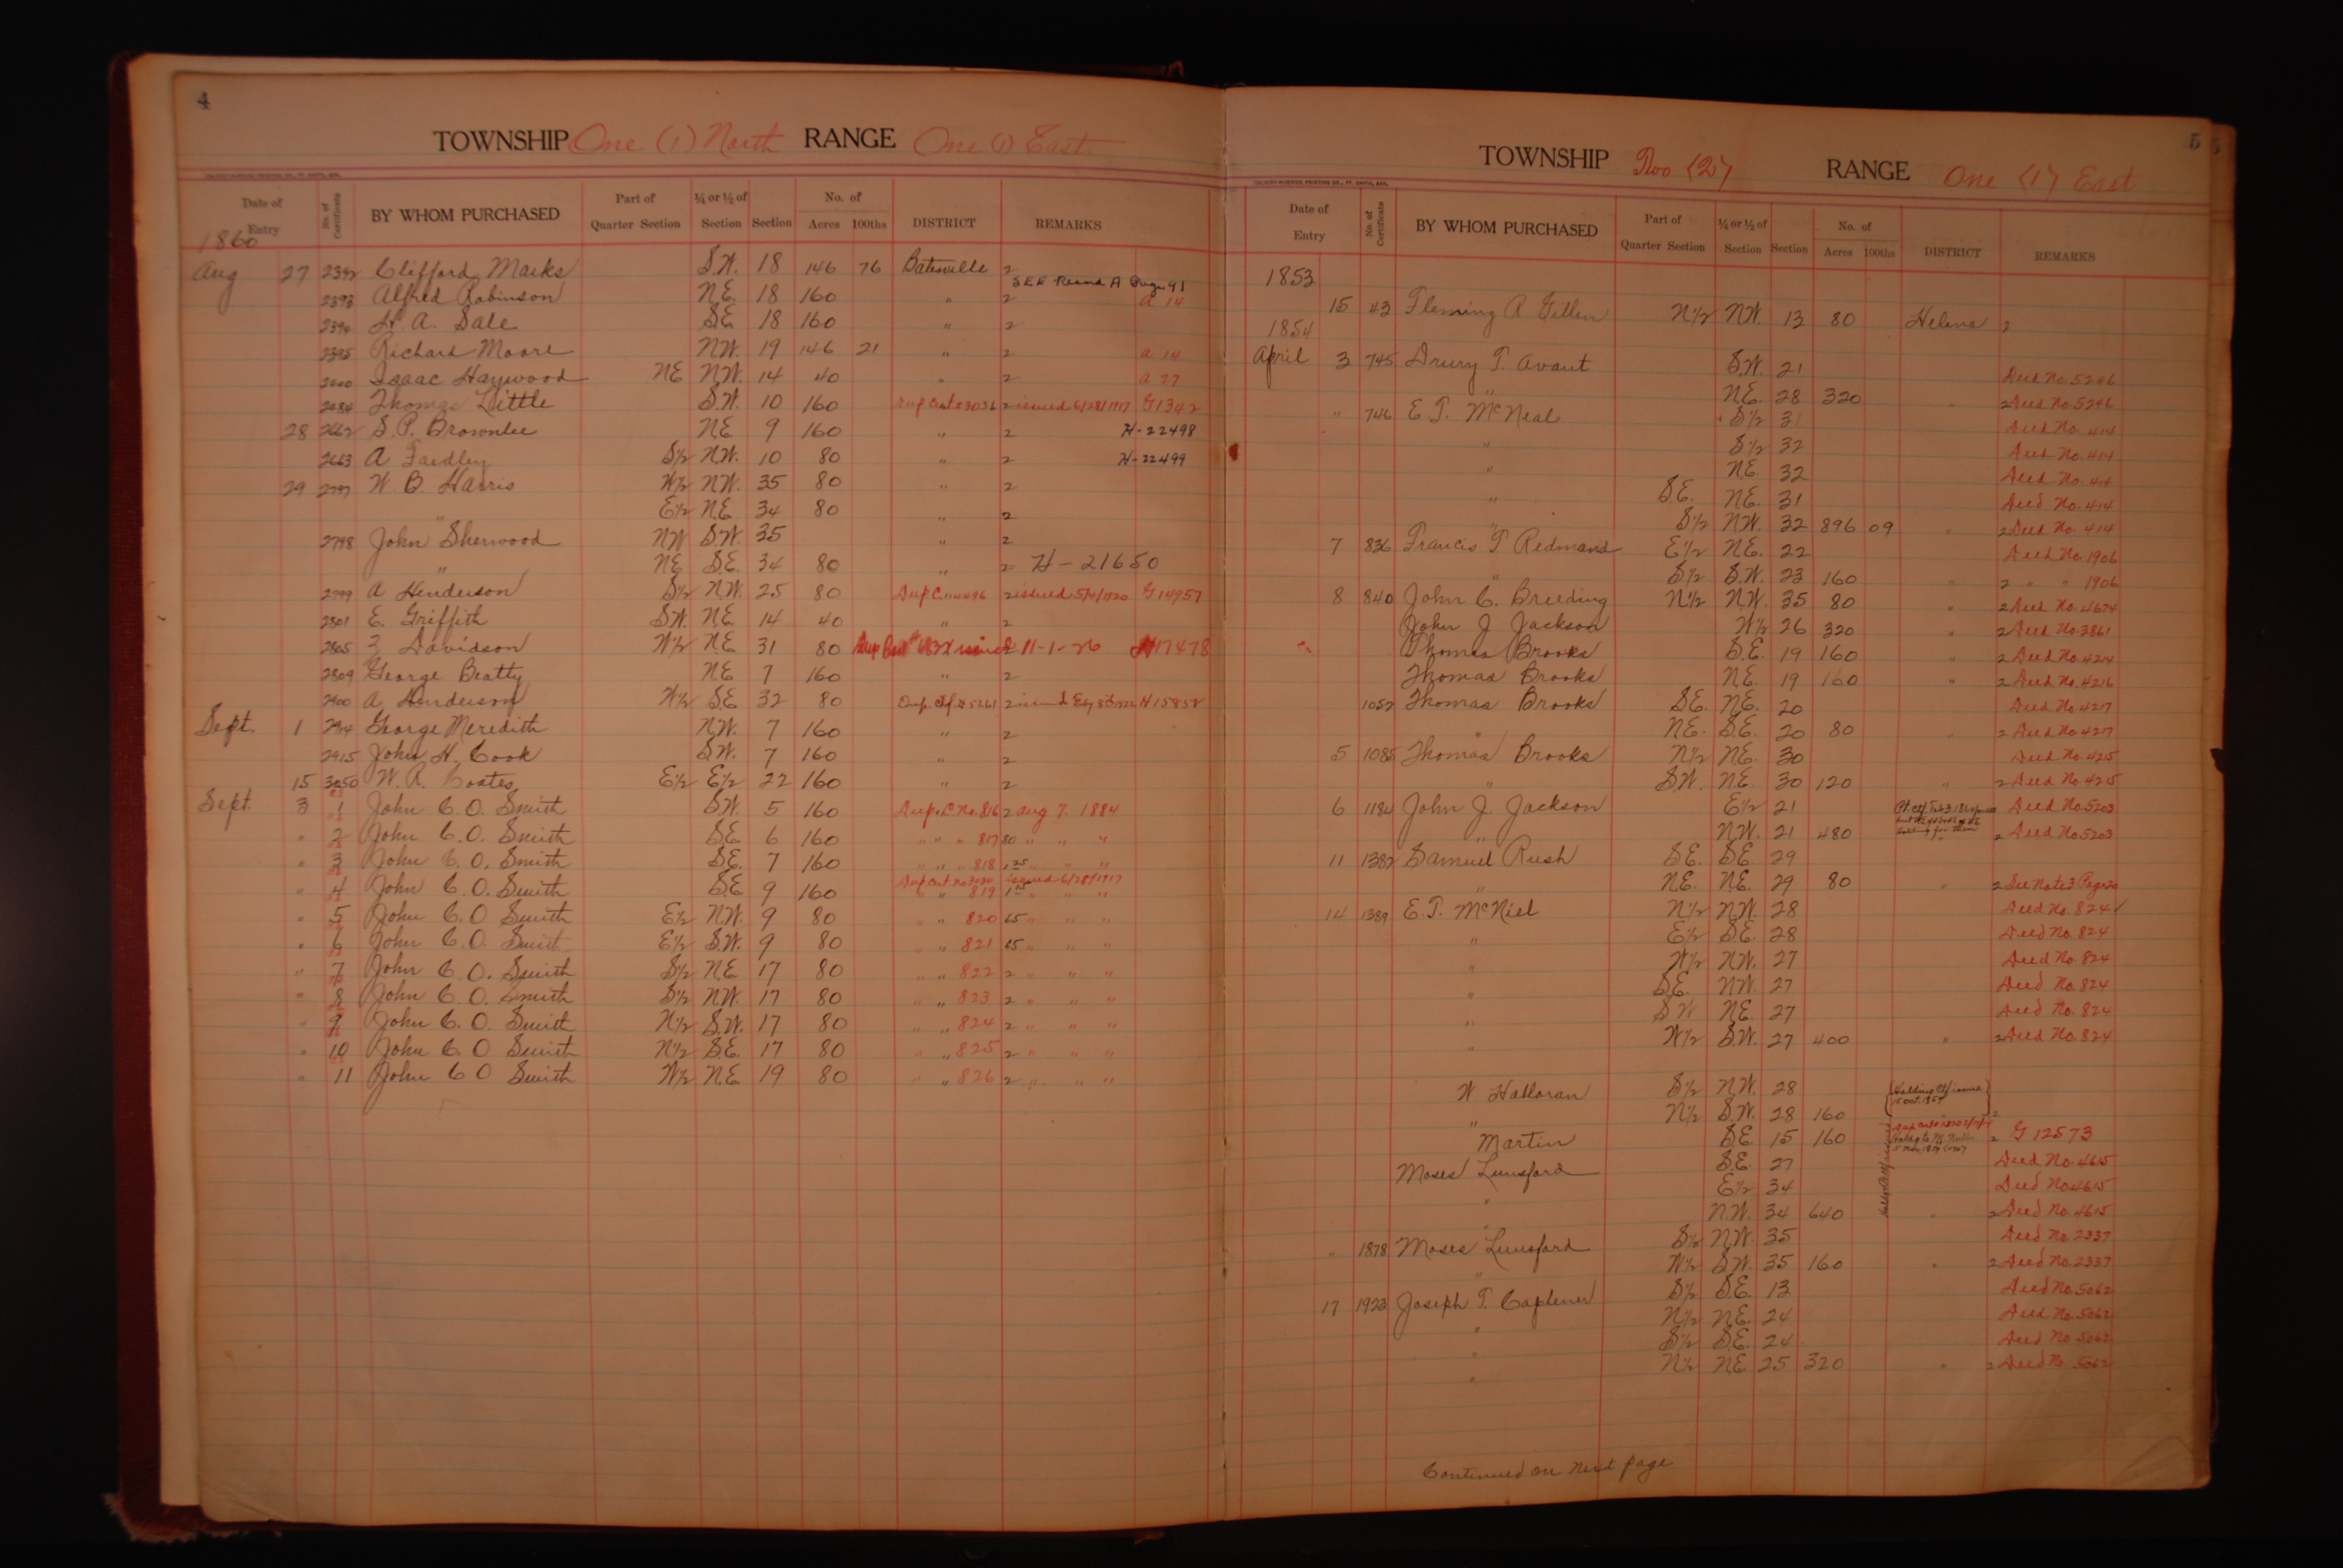 4
TOWNSHIP One (1) North RANGE One (1) East
CALVERT-McBRIDE PRINTING CO., FT. SMITH, ARK.
Date of Entry No. of Certificate BY WHOM PURCHASED Part of Quarter Section ¼ or ½ of Section Section No. of Acres 100ths DISTRICT REMARKS
1860
Aug 27 2392 Clifford Marks S.W. 18 146 76 Batesville 2
SEE Record A Page 91
2393 Alfred Robinson N.E. 18 160 " 2 a 14
2394 H. A. Sale S.E. 18 160 " 2
2395 Richard Moore N.W. 19 146 21 " 2 a 14
Isaac Haywood NE N.W. 14 40 " 2 a 27
Thomas Little S.W. 10 160 Dup Cert #3036 2 issued 6/28/1917 G1342
28 2662 S. P. Brownlee NE 9 160 " 2 H-22498
2663 A S½ N.W. 10 80 " 2 H-22499
29 2797 W. B. Harris W½ N.W. 35 80 " 2
" E½ N.E. 34 80 " 2
2798 John Sherwood NW S.W. 35 " 2
" NE S.E. 34 80 " 2 H-21650
2799 A Henderson S½ N.W. 25 80 2 issued G14957
2801 E. Griffith S.W. N.E. 14 40 " 2
2805 Davidson W½ N.E. 31 80 11-1-26 H17478
2809 George Beatty N.E. 7 160 " 2
2900 A Henderson W½ S.E. 32 80 Dup. Ctf. #5261 2 issued H15858
Sept. 1 2914 George Meredith N.W. 7 160 " 2
2915 John H. Cook S.W. 7 160 " 2
15 3050 W. R. Coates E½ E½ 22 160 " 2
Sept. 3 1 John C. O. Smith S.W. 5 160 Dup. C. No. 816 2 Aug 7. 1884
" 2 John C. O. Smith S.E. 6 160 " " " 817 80 " " "
" 3 John C. O. Smith S.E. 7 160 " " " 818 1 25 " " "
Dup Cert. No 3030 issued 6/28/1917
" 4 John C. O. Smith S.E. 9 160 " " 819 " " "
" 5 John C. O Smith E½ N.W. 9 80 " " 820 65 " " "
" 6 John C. O. Smith E½ S.W. 9 80 " " 821 65 " " "
" 7 John C. O. Smith S½ N.E. 17 80 " " 822 2 " " "
" 8 John C. O. Smith S½ N.W. 17 80 " " 823 2 " " "
" 9 John C. O. Smith N½ S.W. 17 80 " " 824 2 " " "
" 10 John C. O Smith N½ S.E. 17 80 " " 825 2 " " "
" 11 John C O Smith W½ N.E. 19 80 " " 826 2 " " "
5
TOWNSHIP Two (2) RANGE One (1) East
CALVERT-McBRIDE PRINTING CO., FT. SMITH, ARK.
Date of Entry No. of Certificate BY WHOM PURCHASED Part of Quarter Section ¼ or ½ of Section Section No. of Acres 100ths DISTRICT REMARKS
1853
15 43 Fleming R Gillen N½ N.W. 13 80 Helena 2
1854
April 3 745 Drury T. Avant S.W. 21 Deed No. 5246
" N.E. 28 320 " 2 Deed No. 5246
" 746 E. T. McNeal S½ 31 Deed No. 414
" S½ 32 Deed No. 414
" N.E. 32 Deed No. 414
" S.E. N.E. 31 Deed No. 414
" S½ N.W. 32 896 09 " 2 Deed No. 414
7 836 Francis T Redmand E½ N.E. 22 Deed No. 1906
" S½ S.W. 23 160 " 2 " " 1906
8 840 John C. Breeding N½ N.W. 35 80 " 2 Deed No. 4674
John J Jackson W½ 26 320 " 2 Deed No. 3861
Thomas Brooks S.E. 19 160 " 2 Deed No. 4214
Thomas Brooks N.E. 19 160 " 2 Deed No. 4216
1052 Thomas Brooks S.E. N.E. 20 Deed No. 4217
" N.E. S.E. 20 80 " 2 Deed No 4217
5 1085 Thomas Brooks N½ N.E. 30 Deed No. 4215
" S.W. N.E. 30 120 " 2 Deed No 4215
6 1184 John J. Jackson E½ 21 Deed No. 5203
" N.W. 21 480 2 Deed No 5203
11 1382 Samuel Rush S.E. S.E. 29
" N.E. N.E. 29 80 " 2 See Note 3 Page 20
14 1389 E. T. McNiel N½ N.W. 28 Deed No. 824
" E½ S.E. 28 Deed No. 824
" W½ N.W. 27 Deed No. 824
" S.E. N.W. 27 Deed No. 824
" S W N.E. 27 Deed No. 824
" W½ S.W. 27 400 " 2 Deed No. 824
W Halloran S½ N.W. 28
" N½ S.W. 28 160 2
Martin S.E. 15 160 2 G 12573
Moses Lunsford S.E. 27 Deed No. 4615
" E½ 34 Deed No 4615
" N.W. 34 640 " 2 Deed No. 4615
" 1878 Moses Lunsford S½ N.W. 35 Deed No 2337
" W½ S.W. 35 160 " 2 Deed No. 2337
17 1923 Joseph T. Caplener S½ S.E. 13 Deed No. 5062
" N½ N.E. 24 Deed No. 5062
" S½ S.E. 24 Deed No 5062
" N½ N.E 25 320 " 2 Deed No. 5062
Continued on next page